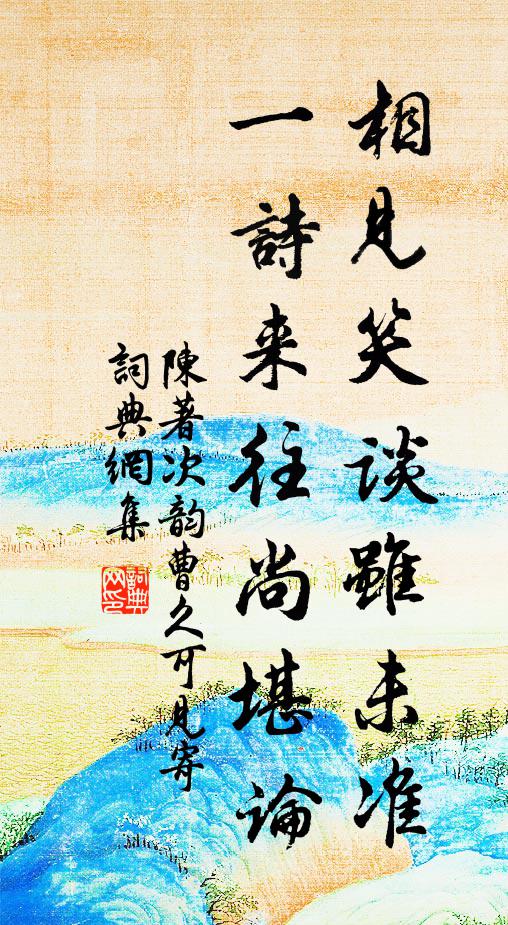 相見笑談雖未准
一詩来往尚堪論
陳著次韵曹久可見寄
詞典網集
詞典網印